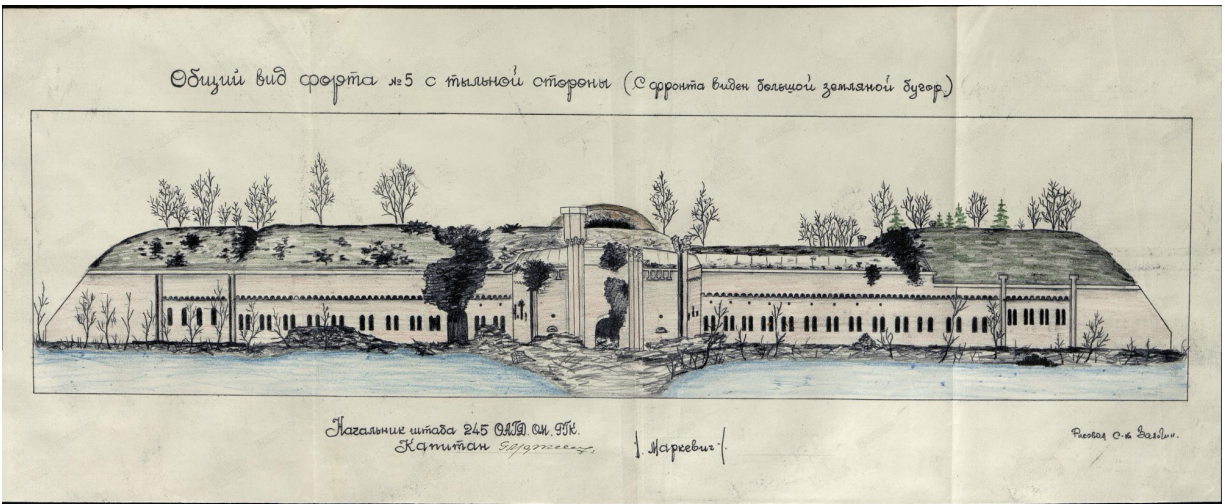 Общий вид форта №5 с тыльной стороны (С фронта виден большой земляной бугор.)
Начальник штаба 245 ОАГД. ОМ. РГК.
Капитан
/. Маркевич /.
Рисовал с-т